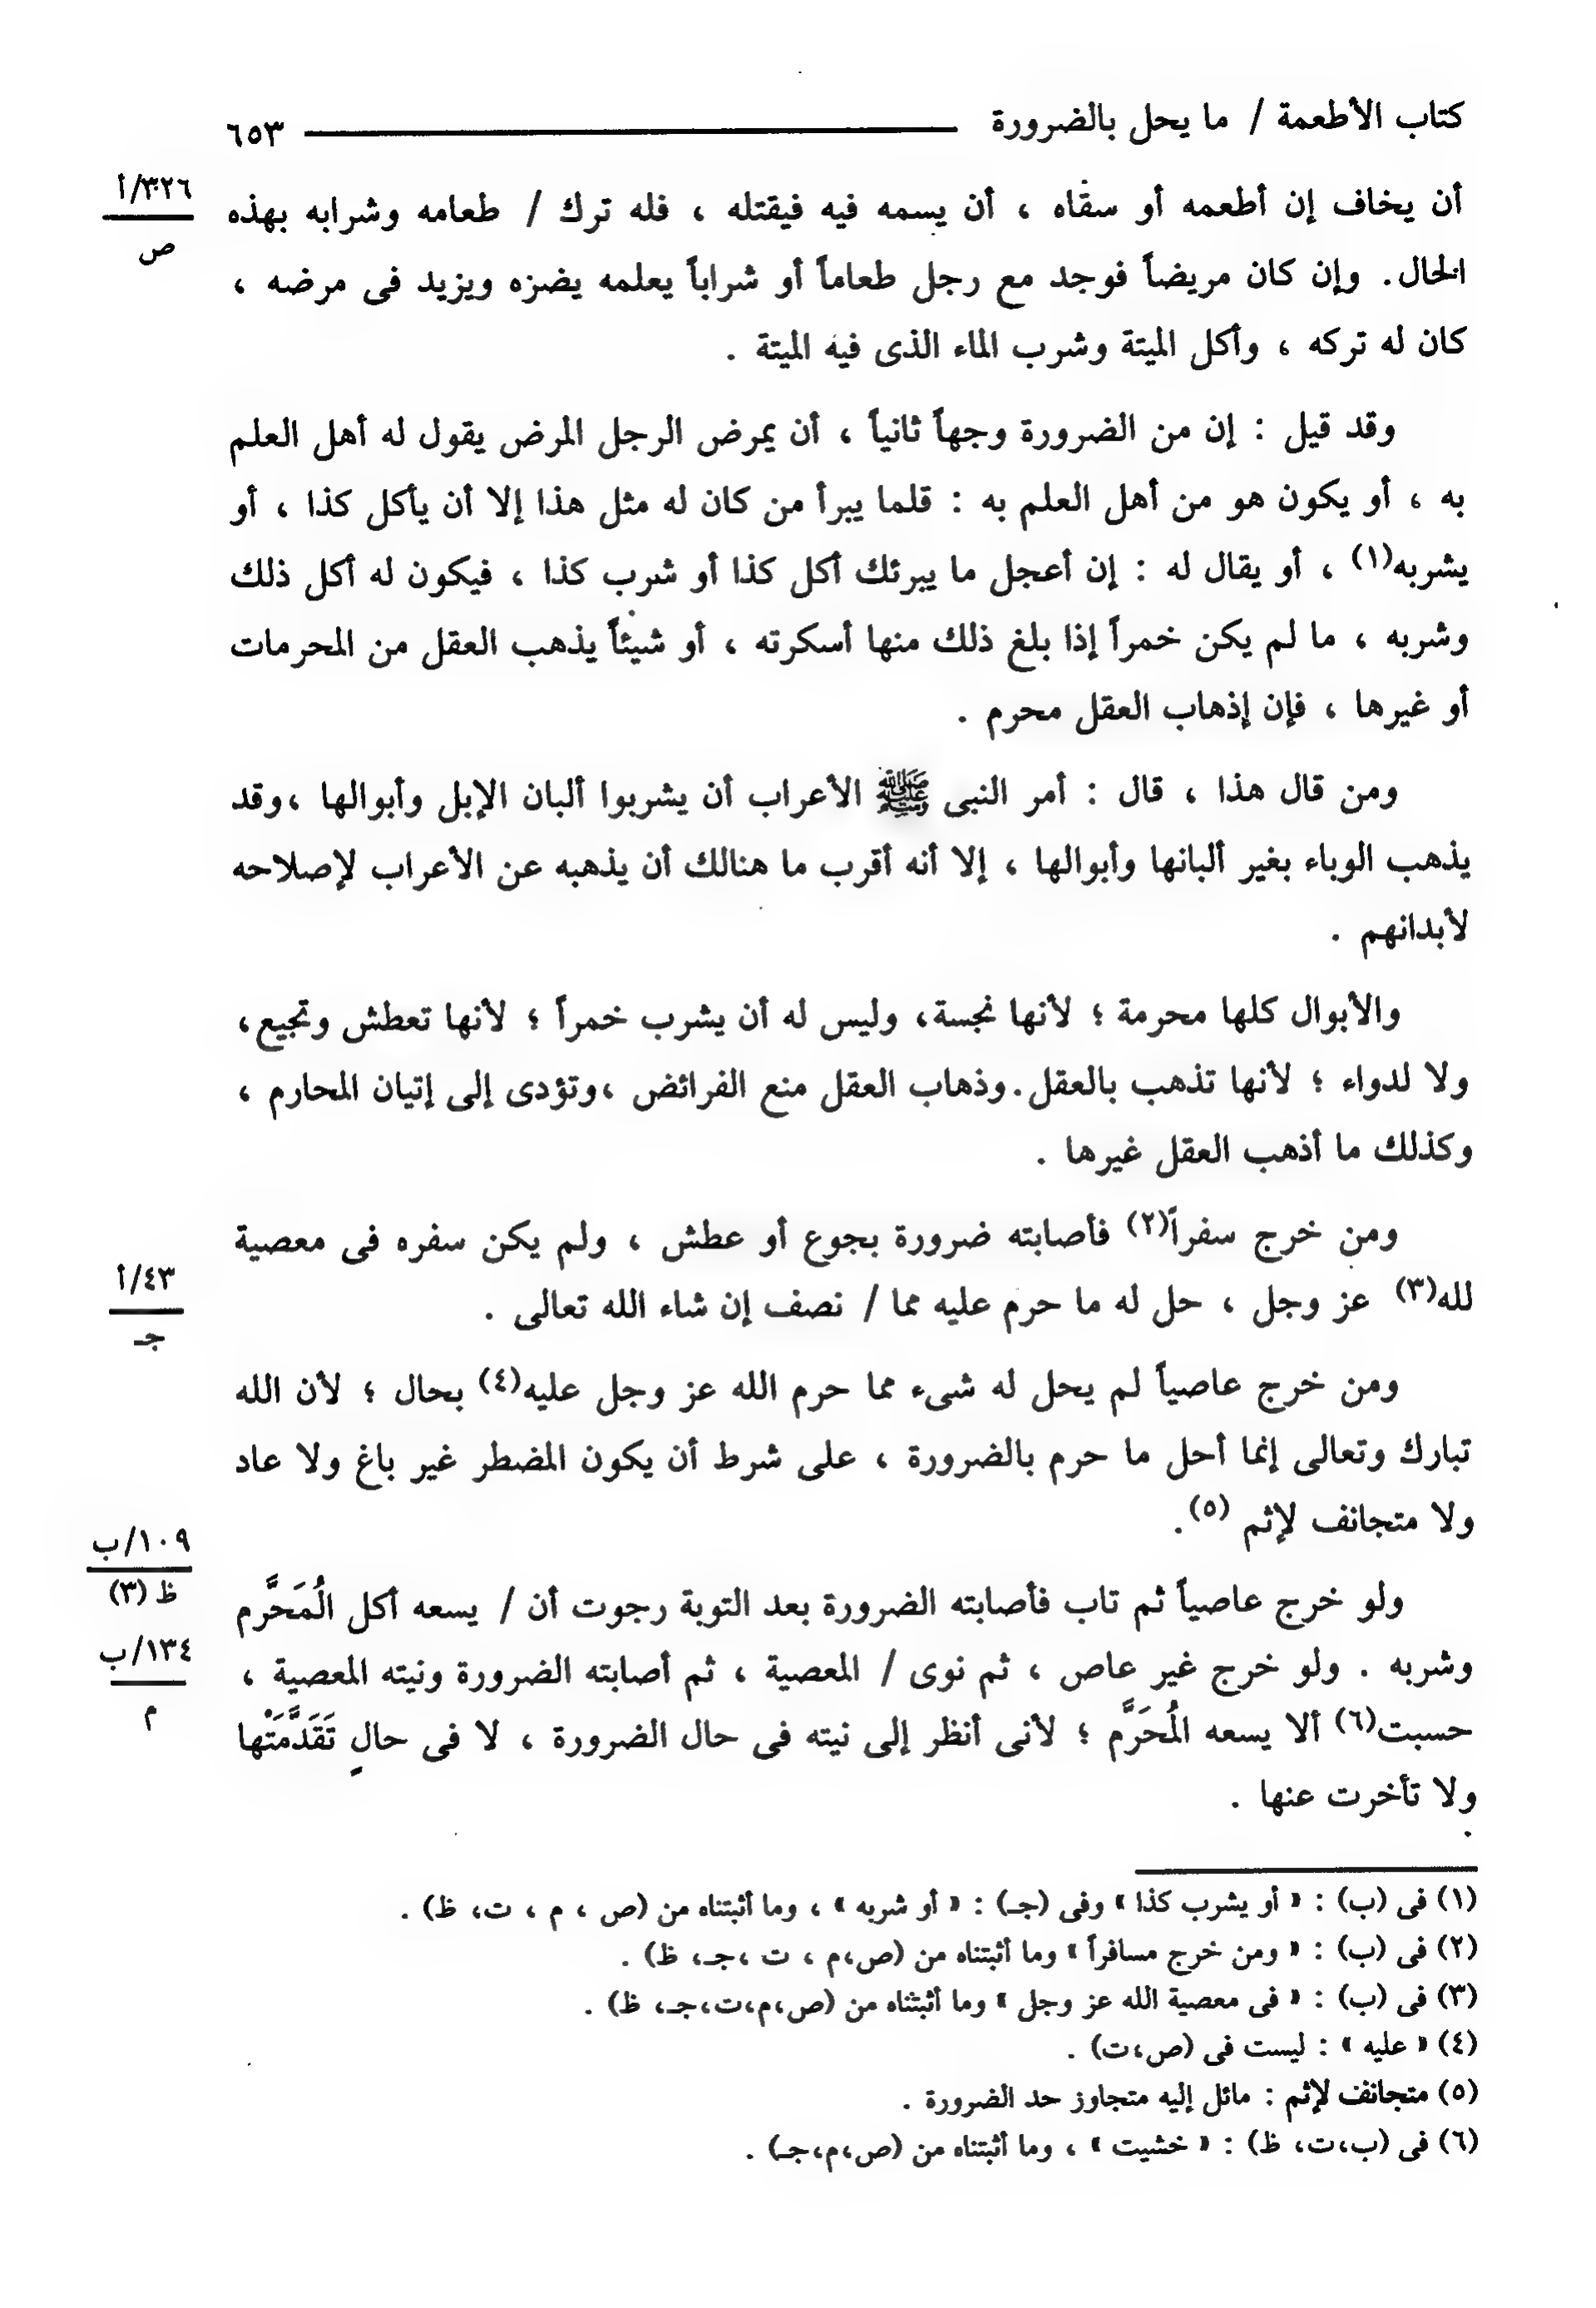 كتاب الأطعمة / ما يحل بالضرورة ٦٥٣
أن يخاف إن أطعمه أو سقاه ، أن يسمه فيه فيقتله ، فله ترك / طعامه وشرابه بهذه
٣٢٦/أ
ص
الحال. وإن كان مريضاً فوجد مع رجل طعاماً أو شراباً يعلمه يضره ويزيد فى مرضه ،
كان له تركه ، وأكل الميتة وشرب الماء الذى فيه الميتة .
وقد قيل : إن من الضرورة وجهاً ثانياً ، أن يمرض الرجل المرض يقول له أهل العلم
به ، أو يكون هو من أهل العلم به : قلما يبرأ من كان له مثل هذا إلا أن يأكل كذا ، أو
يشربه(١) ، أو يقال له : إن أعجل ما يبرئك أكل كذا أو شرب كذا ، فيكون له أكل ذلك
وشربه ، ما لم يكن خمراً إذا بلغ ذلك منها أسكرته ، أو شيئاً يذهب العقل من المحرمات
أو غيرها ، فإن إذهاب العقل محرم .
ومن قال هذا ، قال : أمر النبى ﷺ الأعراب أن يشربوا ألبان الإبل وأبوالها ،وقد
يذهب الوباء بغير ألبانها وأبوالها ، إلا أنه أقرب ما هنالك أن يذهبه عن الأعراب لإصلاحه
لأبدانهم .
والأبوال كلها محرمة ؛ لأنها نجسة، وليس له أن يشرب خمراً ؛ لأنها تعطش وتجيع،
ولا لدواء ؛ لأنها تذهب بالعقل.وذهاب العقل منع الفرائض ،وتؤدى إلى إتيان المحارم ،
وكذلك ما أذهب العقل غيرها .
ومن خرج سفراً(٢) فأصابته ضرورة بجوع أو عطش ، ولم يكن سفره فى معصية
لله(٣) عز وجل ، حل له ما حرم عليه مما / نصف إن شاء الله تعالى .
٤٣/أ
جـ
ومن خرج عاصياً لم يحل له شىء مما حرم الله عز وجل عليه(٤) بحال ؛ لأن الله
تبارك وتعالى إنما أحل ما حرم بالضرورة ، على شرط أن يكون المضطر غير باغ ولا عاد
ولا متجانف لإثم (٥).
ولو خرج عاصياً ثم تاب فأصابته الضرورة بعد التوبة رجوت أن / يسعه أكل الُمَحَّرم
١٠٩/ب
ظ (٣)
وشربه . ولو خرج غير عاص ، ثم نوى / المعصية ، ثم أصابته الضرورة ونيته المعصية ،
١٣٤/ب
م
حسبت(٦) ألا يسعه الُمحَرَّم ؛ لأنى أنظر إلى نيته فى حال الضرورة ، لا فى حالٍ تَقَدَّمَتْها
ولا تأخرت عنها .
(١) فى (ب) : « أو يشرب كذا » وفى (جـ) : « أو شربه » ، وما أثبتناه من (ص ، م ، ت، ظ) .
(٢) فى (ب) : « ومن خرج مسافراً » وما أثبتناه من (ص،م ، ت ،جـ، ظ) .
(٣) فى (ب) : « فى معصية الله عز وجل » وما أثبتناه من (ص،م،ت،جـ، ظ) .
(٤) « عليه » : ليست فى (ص،ت) .
(٥) متجانف لإثم : مائل إليه متجاوز حد الضرورة .
(٦) فى (ب،ت، ظ) : « خشيت » ، وما أثبتناه من (ص،م،جـ) .